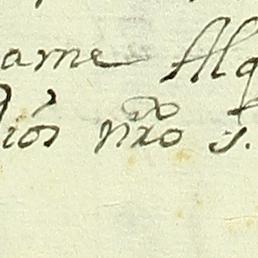 arme Alg
Diós nr̃o s.